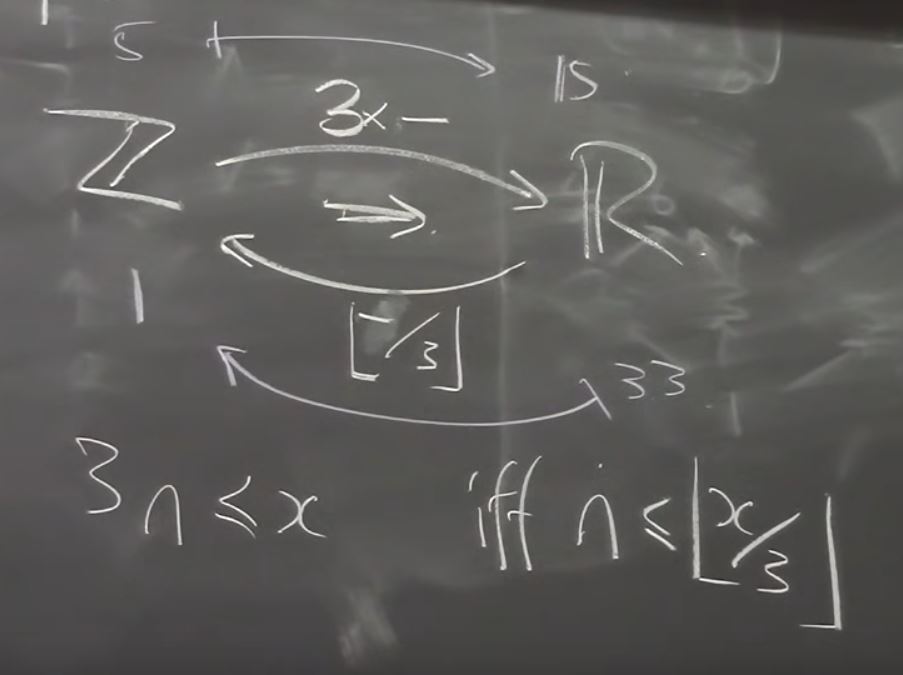 5 ↦ 15
3×−
ℤ ⇒ ℝ
1
⌊−/3⌋
33
3n ≤ x iff n ≤ ⌊x/3⌋